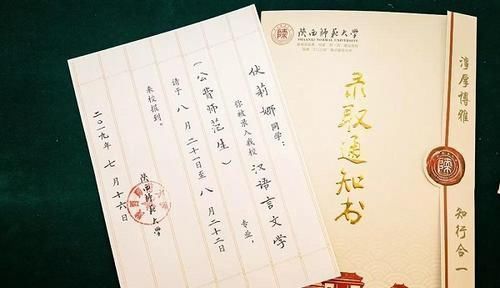 伏莉娜 同学：
你被录入我校 汉语言文学 专业，
（公费师范生）
请于 八月二十一日至八月二十二日
来校报到。
陕西师范大学
二〇一九年 七月十六日
陕西师范大学
SHAANXI NORMAL UNIVERSITY
录取通知书
淳厚博雅
知行合一